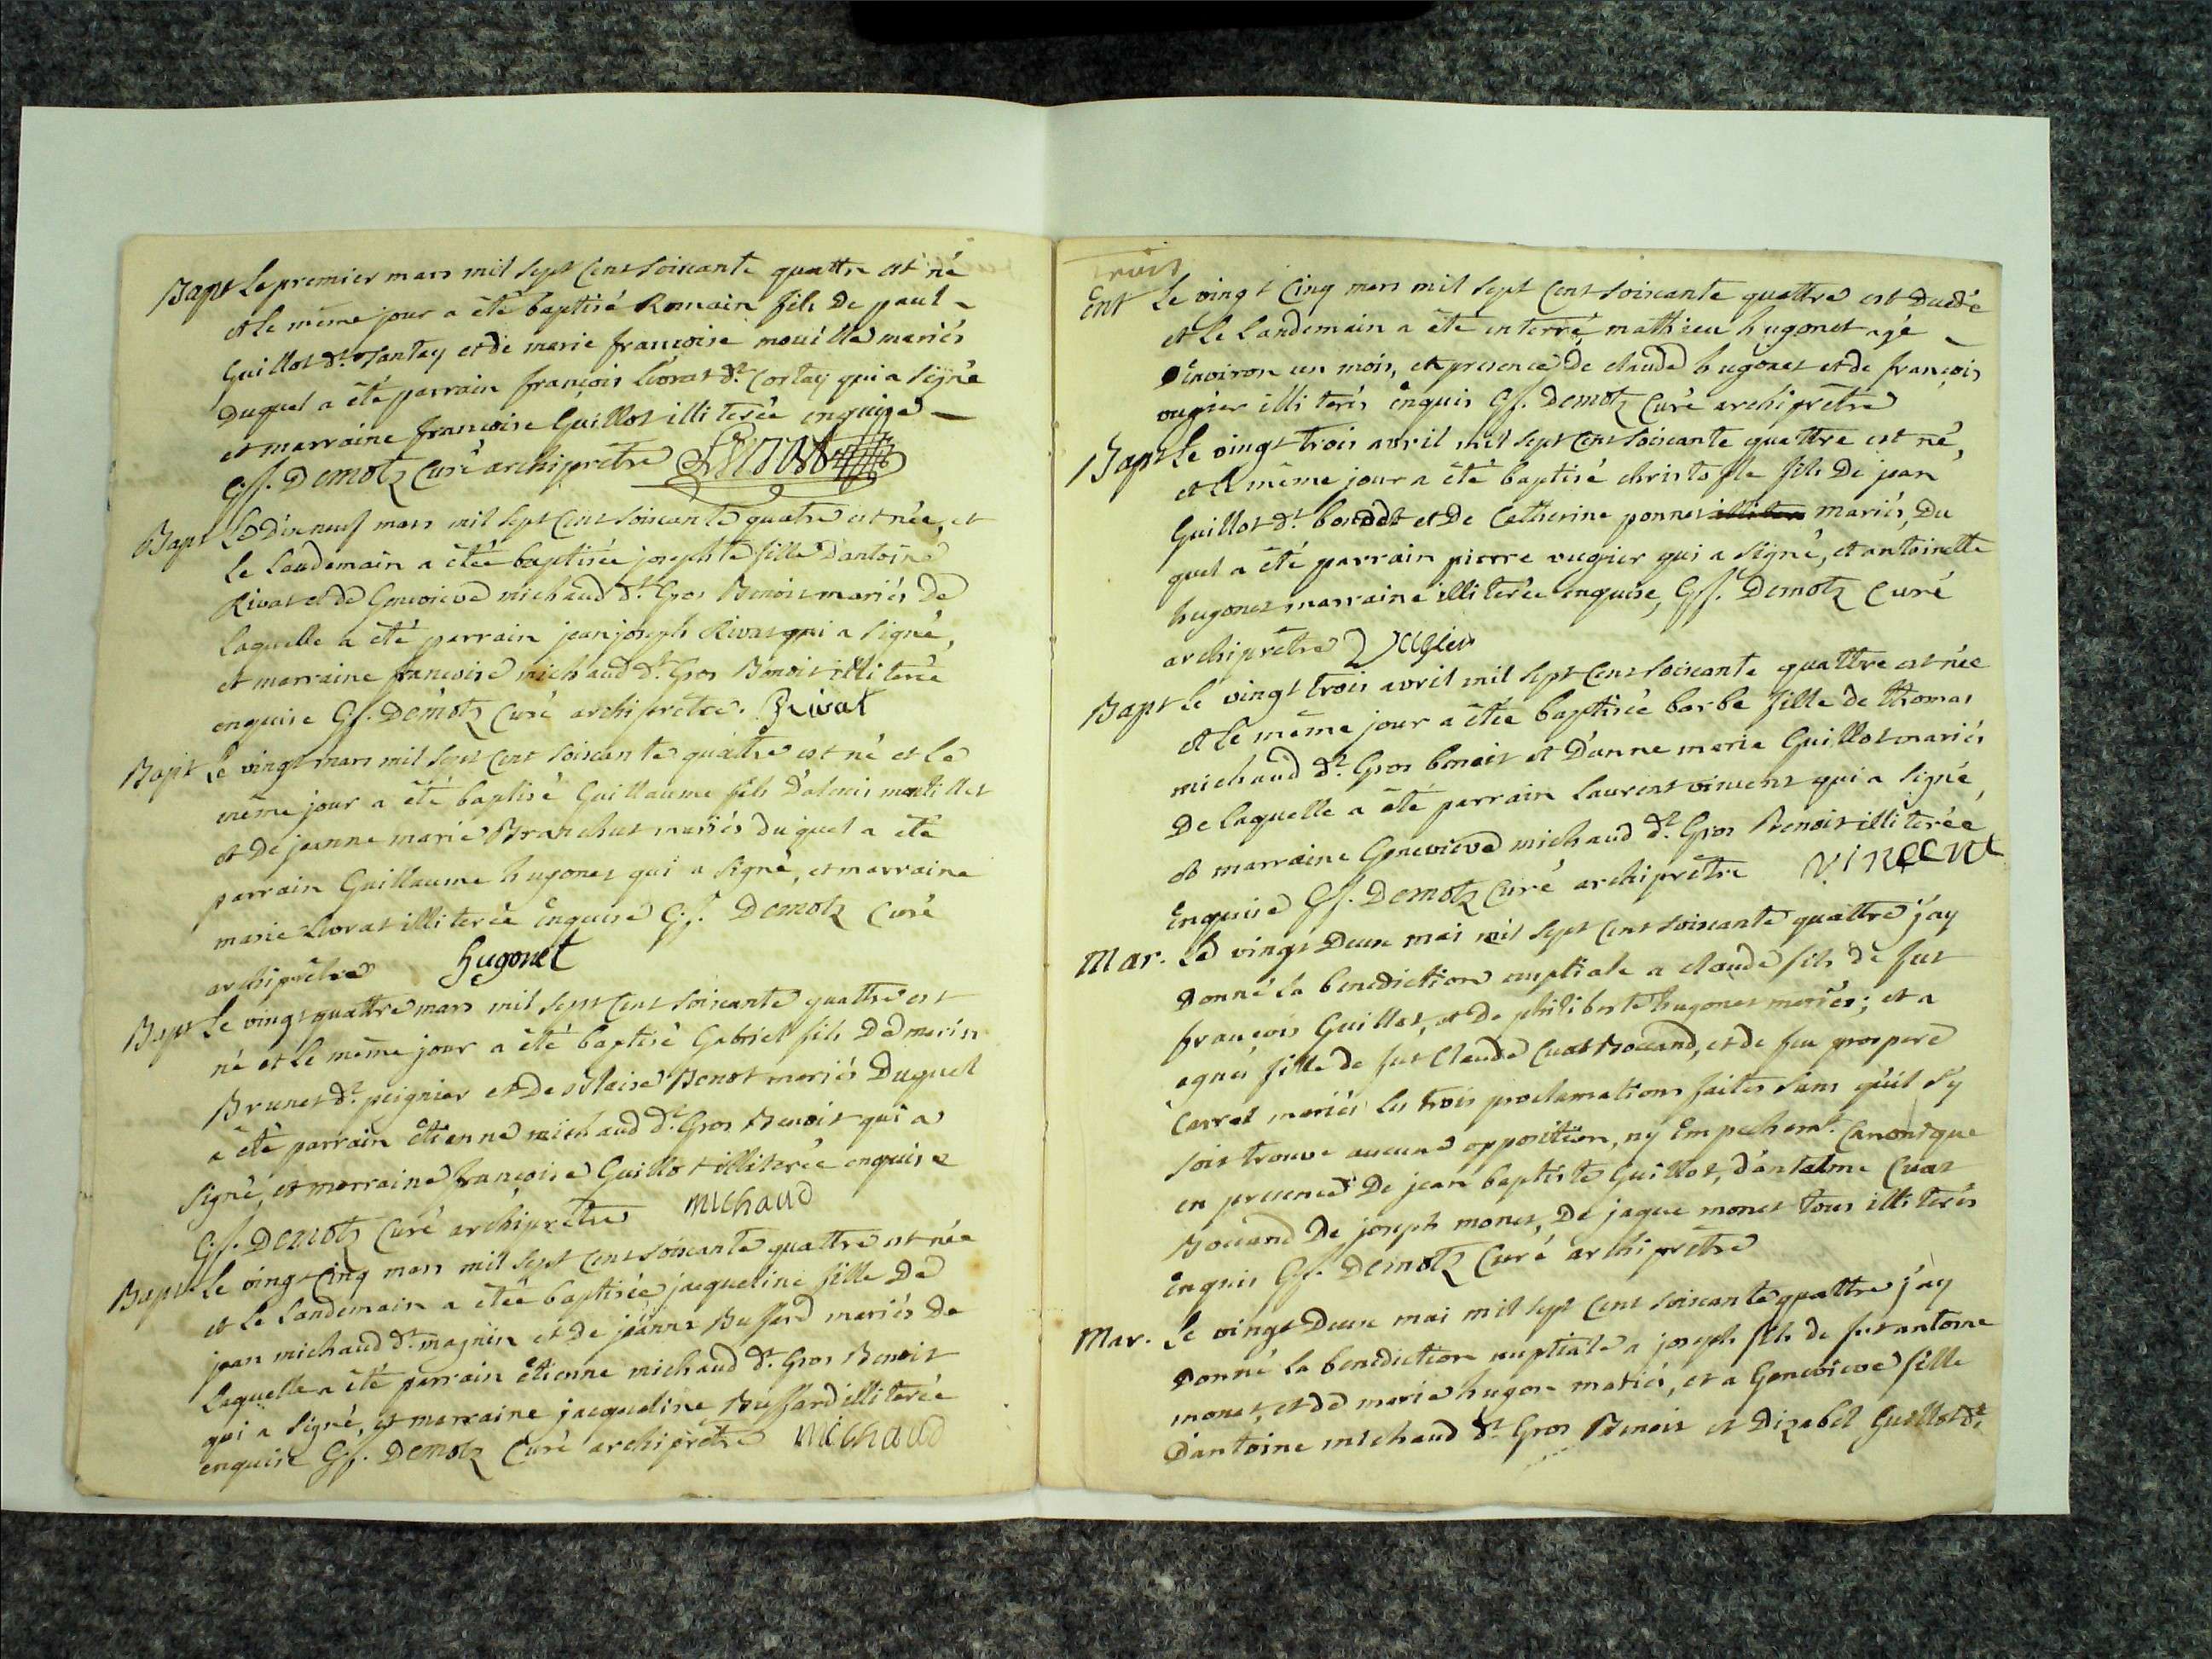 Bapt Le premier mars mil sept Cent soixante quattre est né
et le même jour a été baptisé Romain fils De paul
Guillot dt. santey et de marie françoise mouille mariés
Duquel a été parrain françois Livrat dt. Costay qui a signé
et marraine françoise Guillot illiterée enquise
G.f. Demotz Curé archiprêtre
Bapt Le Dixneuf mars mil sept Cent soixante quatre est née, et
le Landemain a étée baptisée josephte fille D'antoine
Rivat et de Genevieve michaud dt. Gros Benoit mariés de
laquelle a été parrain jean joseph Rivat qui a signé,
et marraine françoise michaud dt. Gros Benoit illiterée
enquise Gf. Demotz Curé archiprêtre. Rivat
Bapt Le vingt mars mil sept Cent soixante quattre est né et le
même jour a été baptisé Guillaume fils D'alexis montillet
et De jeanne marie Branchut mariés duquel a été
parrain Guillaume hugonet qui a signé, et marraine
marie Livrat illiterée Enquise G.f. Demotz Curé
archiprêtre hugonet
Bapt Le vingt quattre mars mil sept Cent soixante quattre est
né et le même jour a été baptisé Gabriel fils De marin
Brunet dt. peignier et De Benot mariés Duquel
a été parrain Etienne michaud dt. Gros Benoit qui a
signé, et marraine françoise Guillot illiterée enquise
G.f. Demotz Curé archiprêtre michaud
Bapt Le vingt Cinq mars mil sept Cent soixante quattre est née
et le Landemain a étée baptisée jacqueline fille De
jean michaud dt. magnin et De jeanne Buffard mariés De
laquelle a été parrain Etienne michaud dt. Gros Benoit
qui a signé, et marraine jacqueline Buffard illiterée
enquise Gf. Demotz Curé archiprêtre michaud
Trois
Ent Le vingt Cinq mars mil sept Cent soixante quattre est Decédé
et le Landemain a été enterré, mathieu hugonet agé
D'environ un mois, en presence De claude hugonet et de françois
vugier illiterés enquis Gf. Demotz Curé archiprêtre
Bapt Le vingt trois avril mil sept Cent soixante quattre est né,
et le même jour a été baptisé christofle fils De jean
Guillot dt. et De Catherine ponnet mariés, Du
quel a été parrain pierre vugier qui a signé, et antoinette
hugonet marraine illiterée enquise, Gf. Demotz Curé
archiprêtre Vugier
Bapt Le vingt trois avril mil sept Cent soixante quattre est née
et le même jour a étée baptisée barbe fille de thomas
michaud dt. Gros benoit et D'anne marie Guillot mariés
De laquelle a été parrain laurent vincent qui a signé,
et marraine Genevieve michaud dt. Gros Benoit illiterée
Enquise Gf. Demotz Curé archiprêtre vincent
Mar. Le vingt Deux mai mil sept Cent soixante quattre j'ay
Donné la benediction nuptiale a claude fils de fut
françois Guillot, et De philiberte hugonet mariés; et a
agnes fille de fut Claude Cuat Bouand, et de feu prospere
Carrel mariés les trois proclamations faites sans qu'il s'y
soit trouve aucune opposition, ny Empechemt. Canonique
en presence De jean baptiste Guillot, d'antalme Cuat
Bouand De joseph monet, De jaque monet tous illiterés
Enquis Gf. Demotz Curé archiprêtre
Mar. Le vingt Deux mai mil sept Cent soixante quattre j'ay
Donné la benediction nuptiale a joseph fils de fut antoine
monet, et de marie hugon mariés, et a Genevieve fille
D'antoine michaud dt. Gros Benoit et Dizabel Guillot dt.